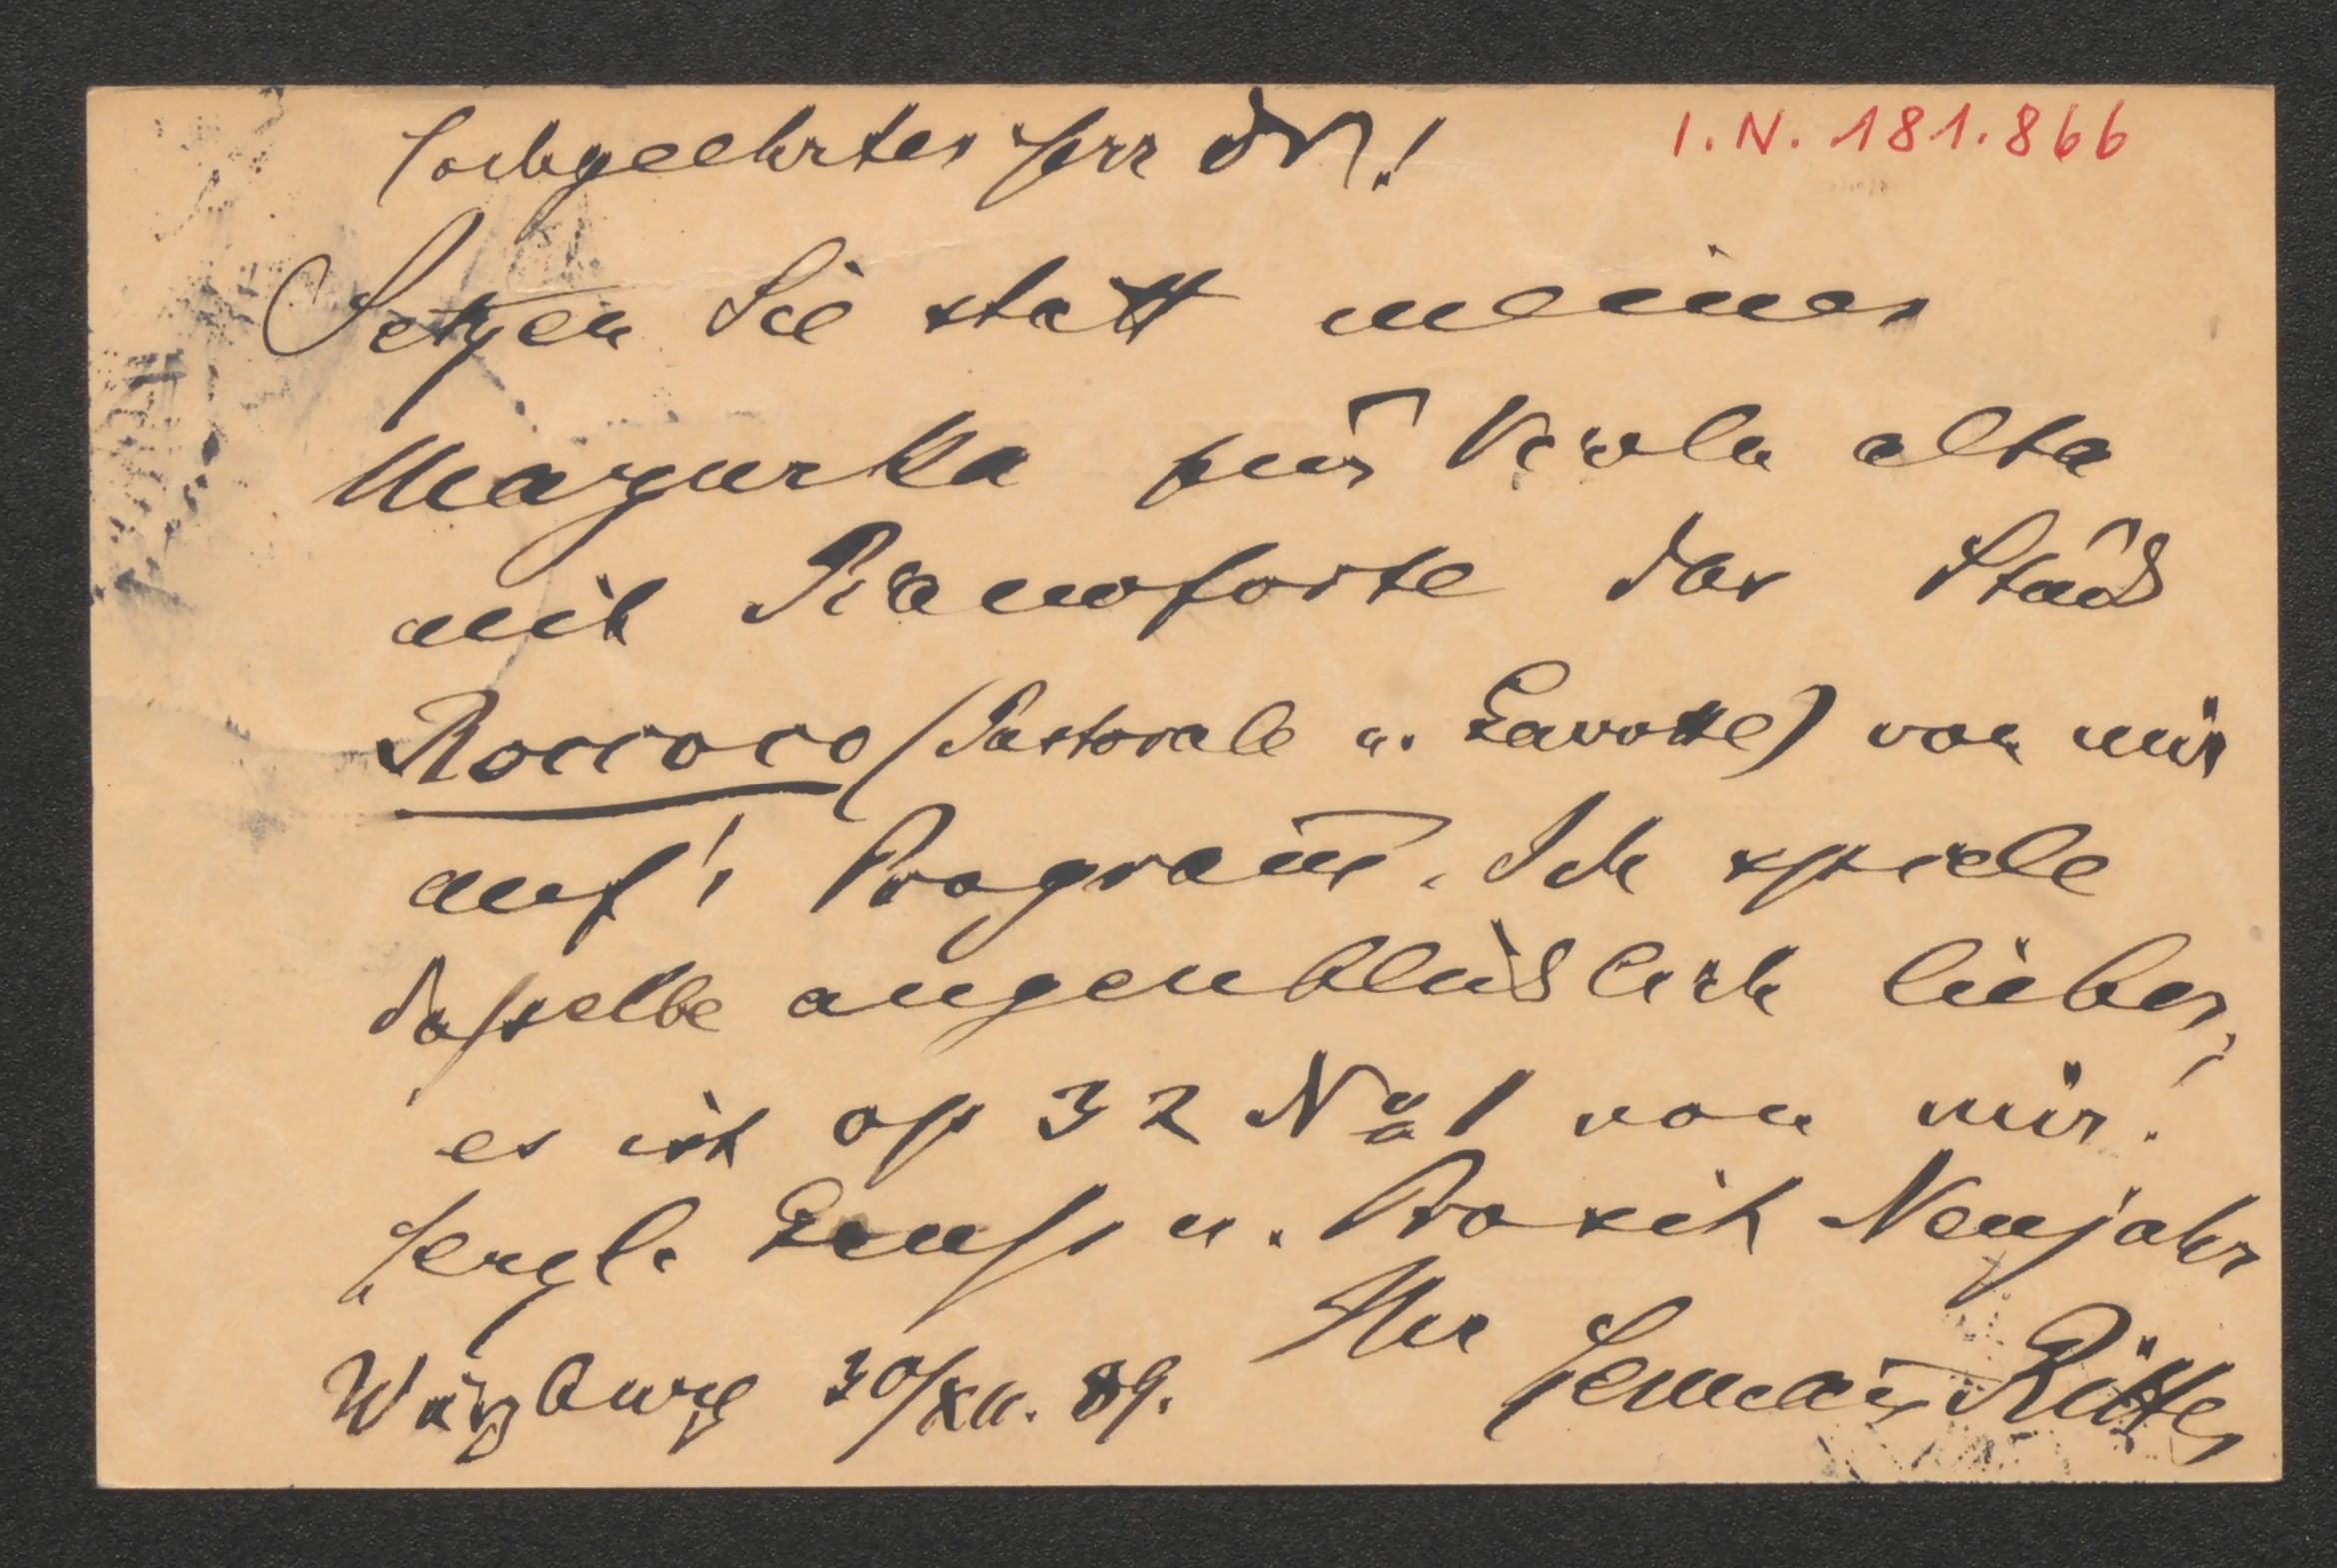 Hochgeehrter Herr Dr.!
I.N. 181.866
Setzen Sie statt meiner
Mazurka für Viola alta
mit Pianoforte das Stück
Roccoco (Pastorale u. Gavotte) von mir
auf's Program̅. Ich spiele
dasselbe augenblicklich lieber;
es ist op 32 No 1 von mir!
Herzl. Gruß u. Prosit Neujahr
Ihr Herman̅ Ritter
Würzburg 30/XII. 89.